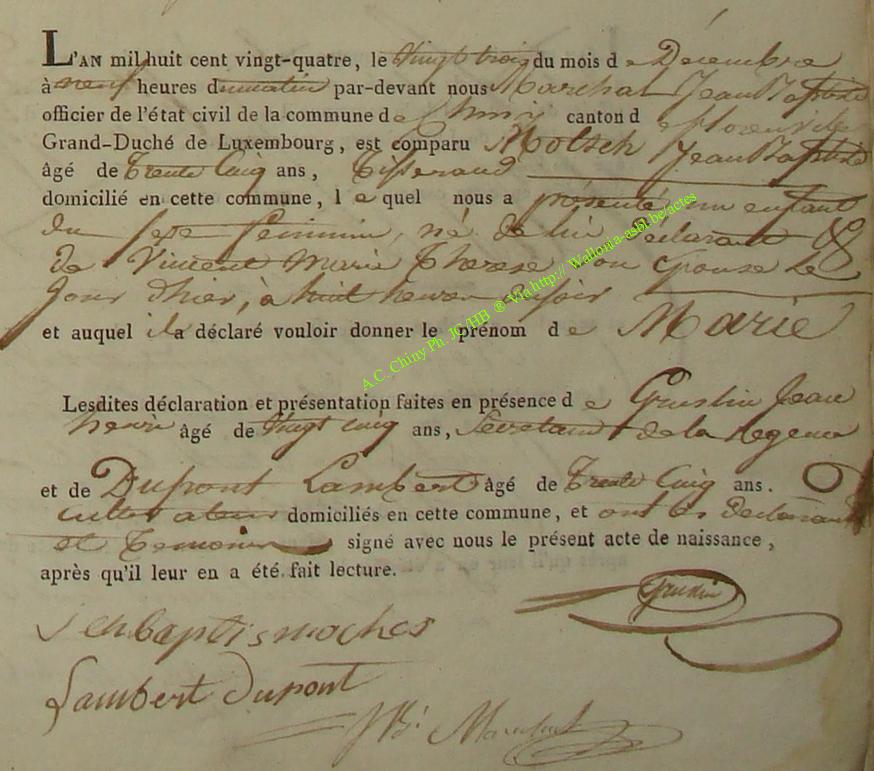 L'AN mil huit cent vingt-quatre, le vingt trois du mois de Décembre
à neuf heures du matin par-devant nous Marchal Jean Baptiste
officier de l'état civil de la commune de Chiny canton de florenville
Grand-Duché de Luxembourg, est comparu Motsch Jean Baptiste
âgé de Trente Cinq ans, Tisserand
domicilié en cette commune, lequel nous a présenté un enfant
du sexe féminin né de lui déclarant &
de Vincent Marie Therese son épouse Le
Jour d'hier, à huit heures du soir
et auquel il a déclaré vouloir donner le prénom de Marie
A.C. Chiny Ph. JC/HB ® Via http://Wallonia-asbl.be/actes
Lesdites déclaration et présentation faites en présence de Grustin Jean
henri âgé de vingt cinq ans, Secretaire de la Regence
et de Dupont Lambert âgé de Trente Cinq ans.
cultivateur domiciliés en cette commune, et ont les Déclarant
et Temoins signé avec nous le présent acte de naissance,
après qu'il leur en a été fait lecture.
Grustin
Lambert Dupont
JBt Marchal